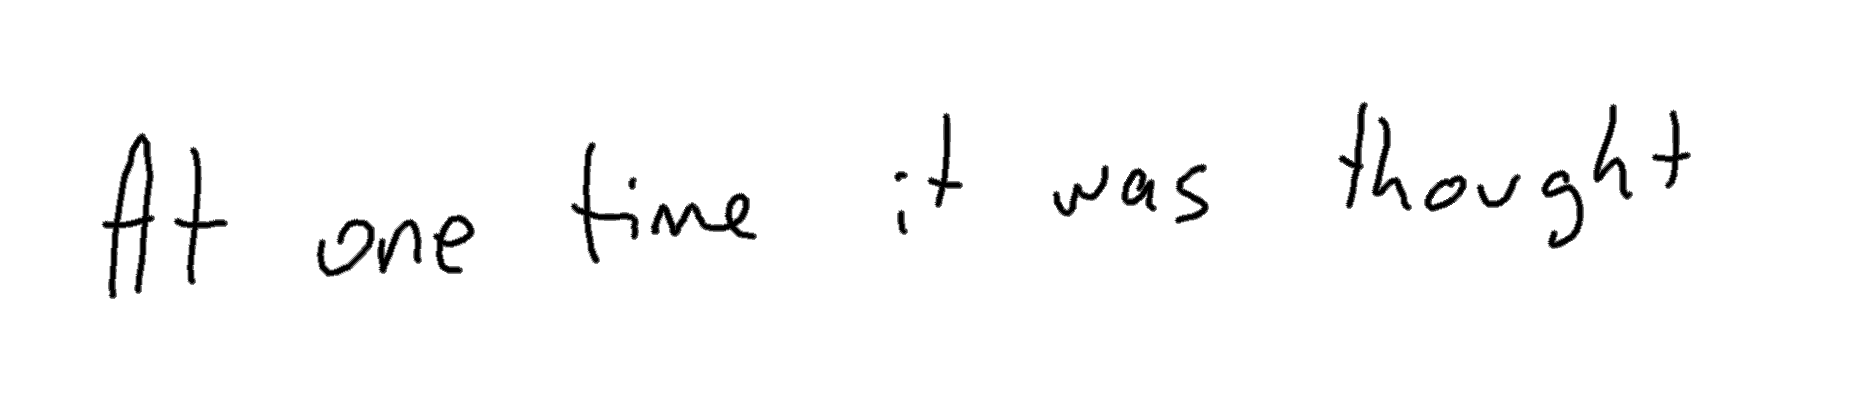 At one time it was thought